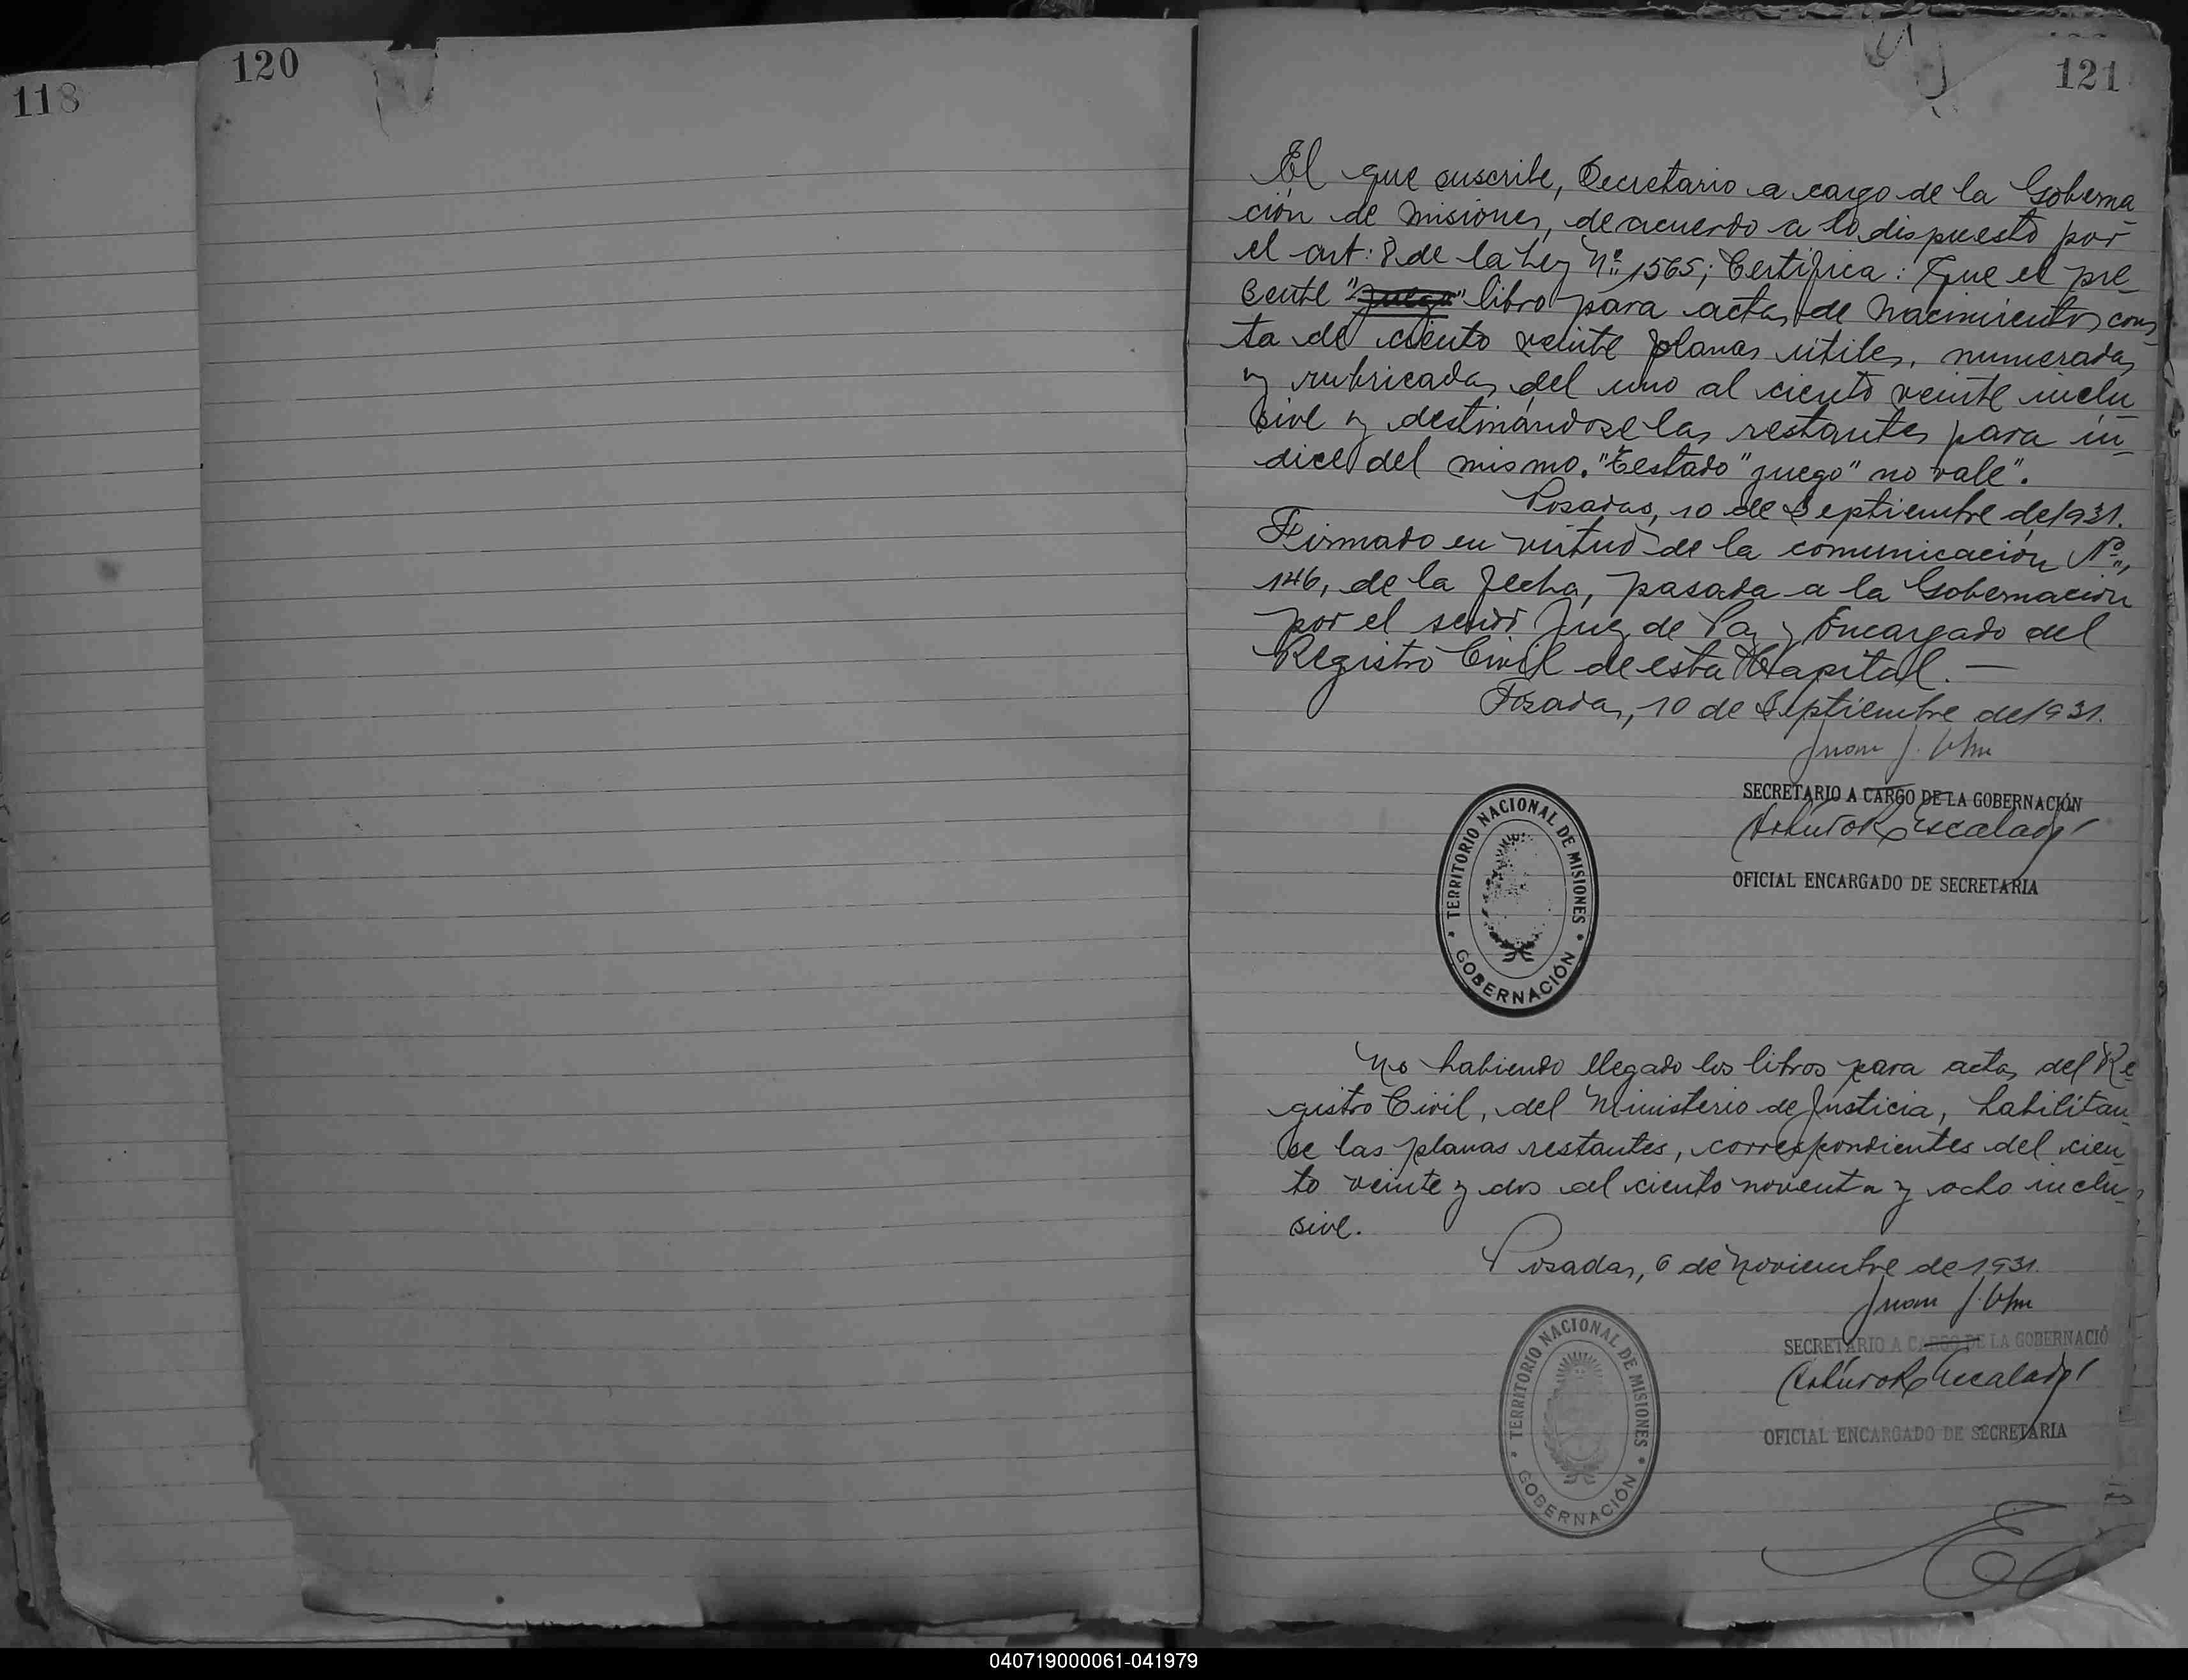 118
120
121
El que suscribe, Secretario a cargo de la Goberna
ción de Misiones, de acuerdo a lo dispuesto por
el art: 8 de la Ley Nº 1565; Certifica: Que el pre-
sente "juego" libro para actas de Nacimientos cons-
ta de ciento veinte planas útiles, numeradas
y rubricadas del uno al ciento veinte inclu
sive y destinándose las restantes para ín-
dice del mismo. "Testado "juego" no vale".
Posadas, 10 de Septiembre de 1931.
Firmado en virtud de la comunicación Nº,
146, de la fecha, pasada a la Gobernación
por el señor Juez de Paz y Encargado del
Registro Civil de esta Capital. —
Posadas, 10 de Septiembre de 1931.
Juan J.
SECRETARIO A CARGO DE LA GOBERNACIÓN
Arturo R Escalada
OFICIAL ENCARGADO DE SECRETARIA
TERRITORIO NACIONAL DE MISIONES
GOBERNACIÓN
No habiendo llegado los libros para actas del Re-
gistro Civil, del Ministerio de Justicia, habilitan-
se las planas restantes, correspondientes del cien-
to veinte y dos al ciento noventa y ocho inclu-
sive.
Posadas, 6 de Noviembre de 1931.
Juan J.
SECRETARIO A CARGO DE LA GOBERNACIÓ
Arturo R Escalada
OFICIAL ENCARGADO DE SECRETARIA
TERRITORIO NACIONAL DE MISIONES
GOBERNACIÓN
040719000061-041979